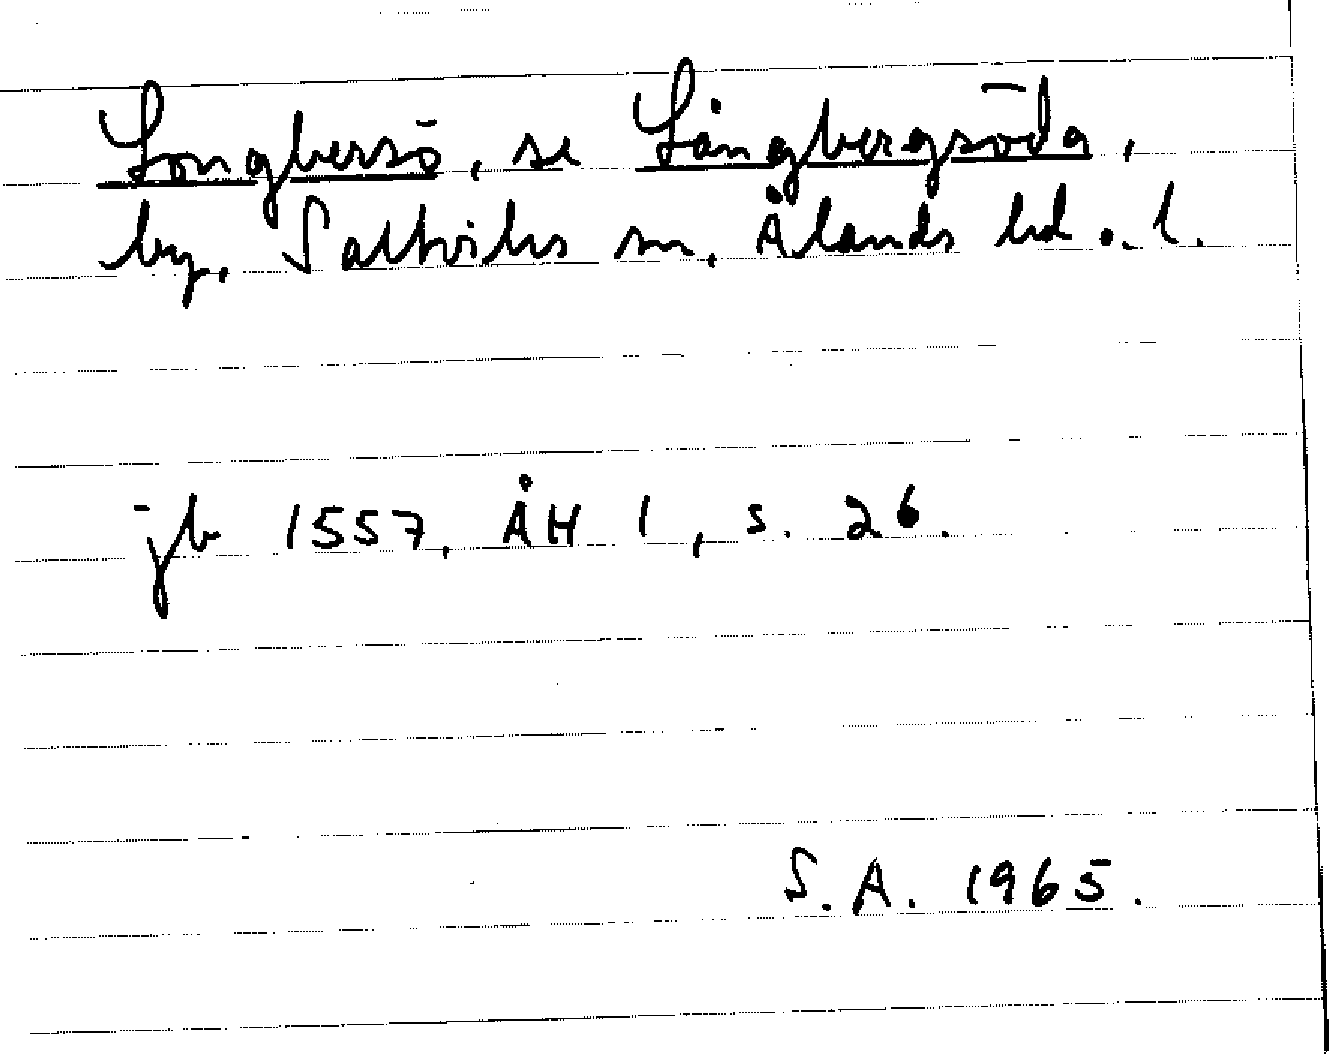 Longbersö, se Långbergsöda,
by, Saltviks sn, Ålands hd o. l.
jb 1557, ÅH 1, s. 26.
S.A. 1965.